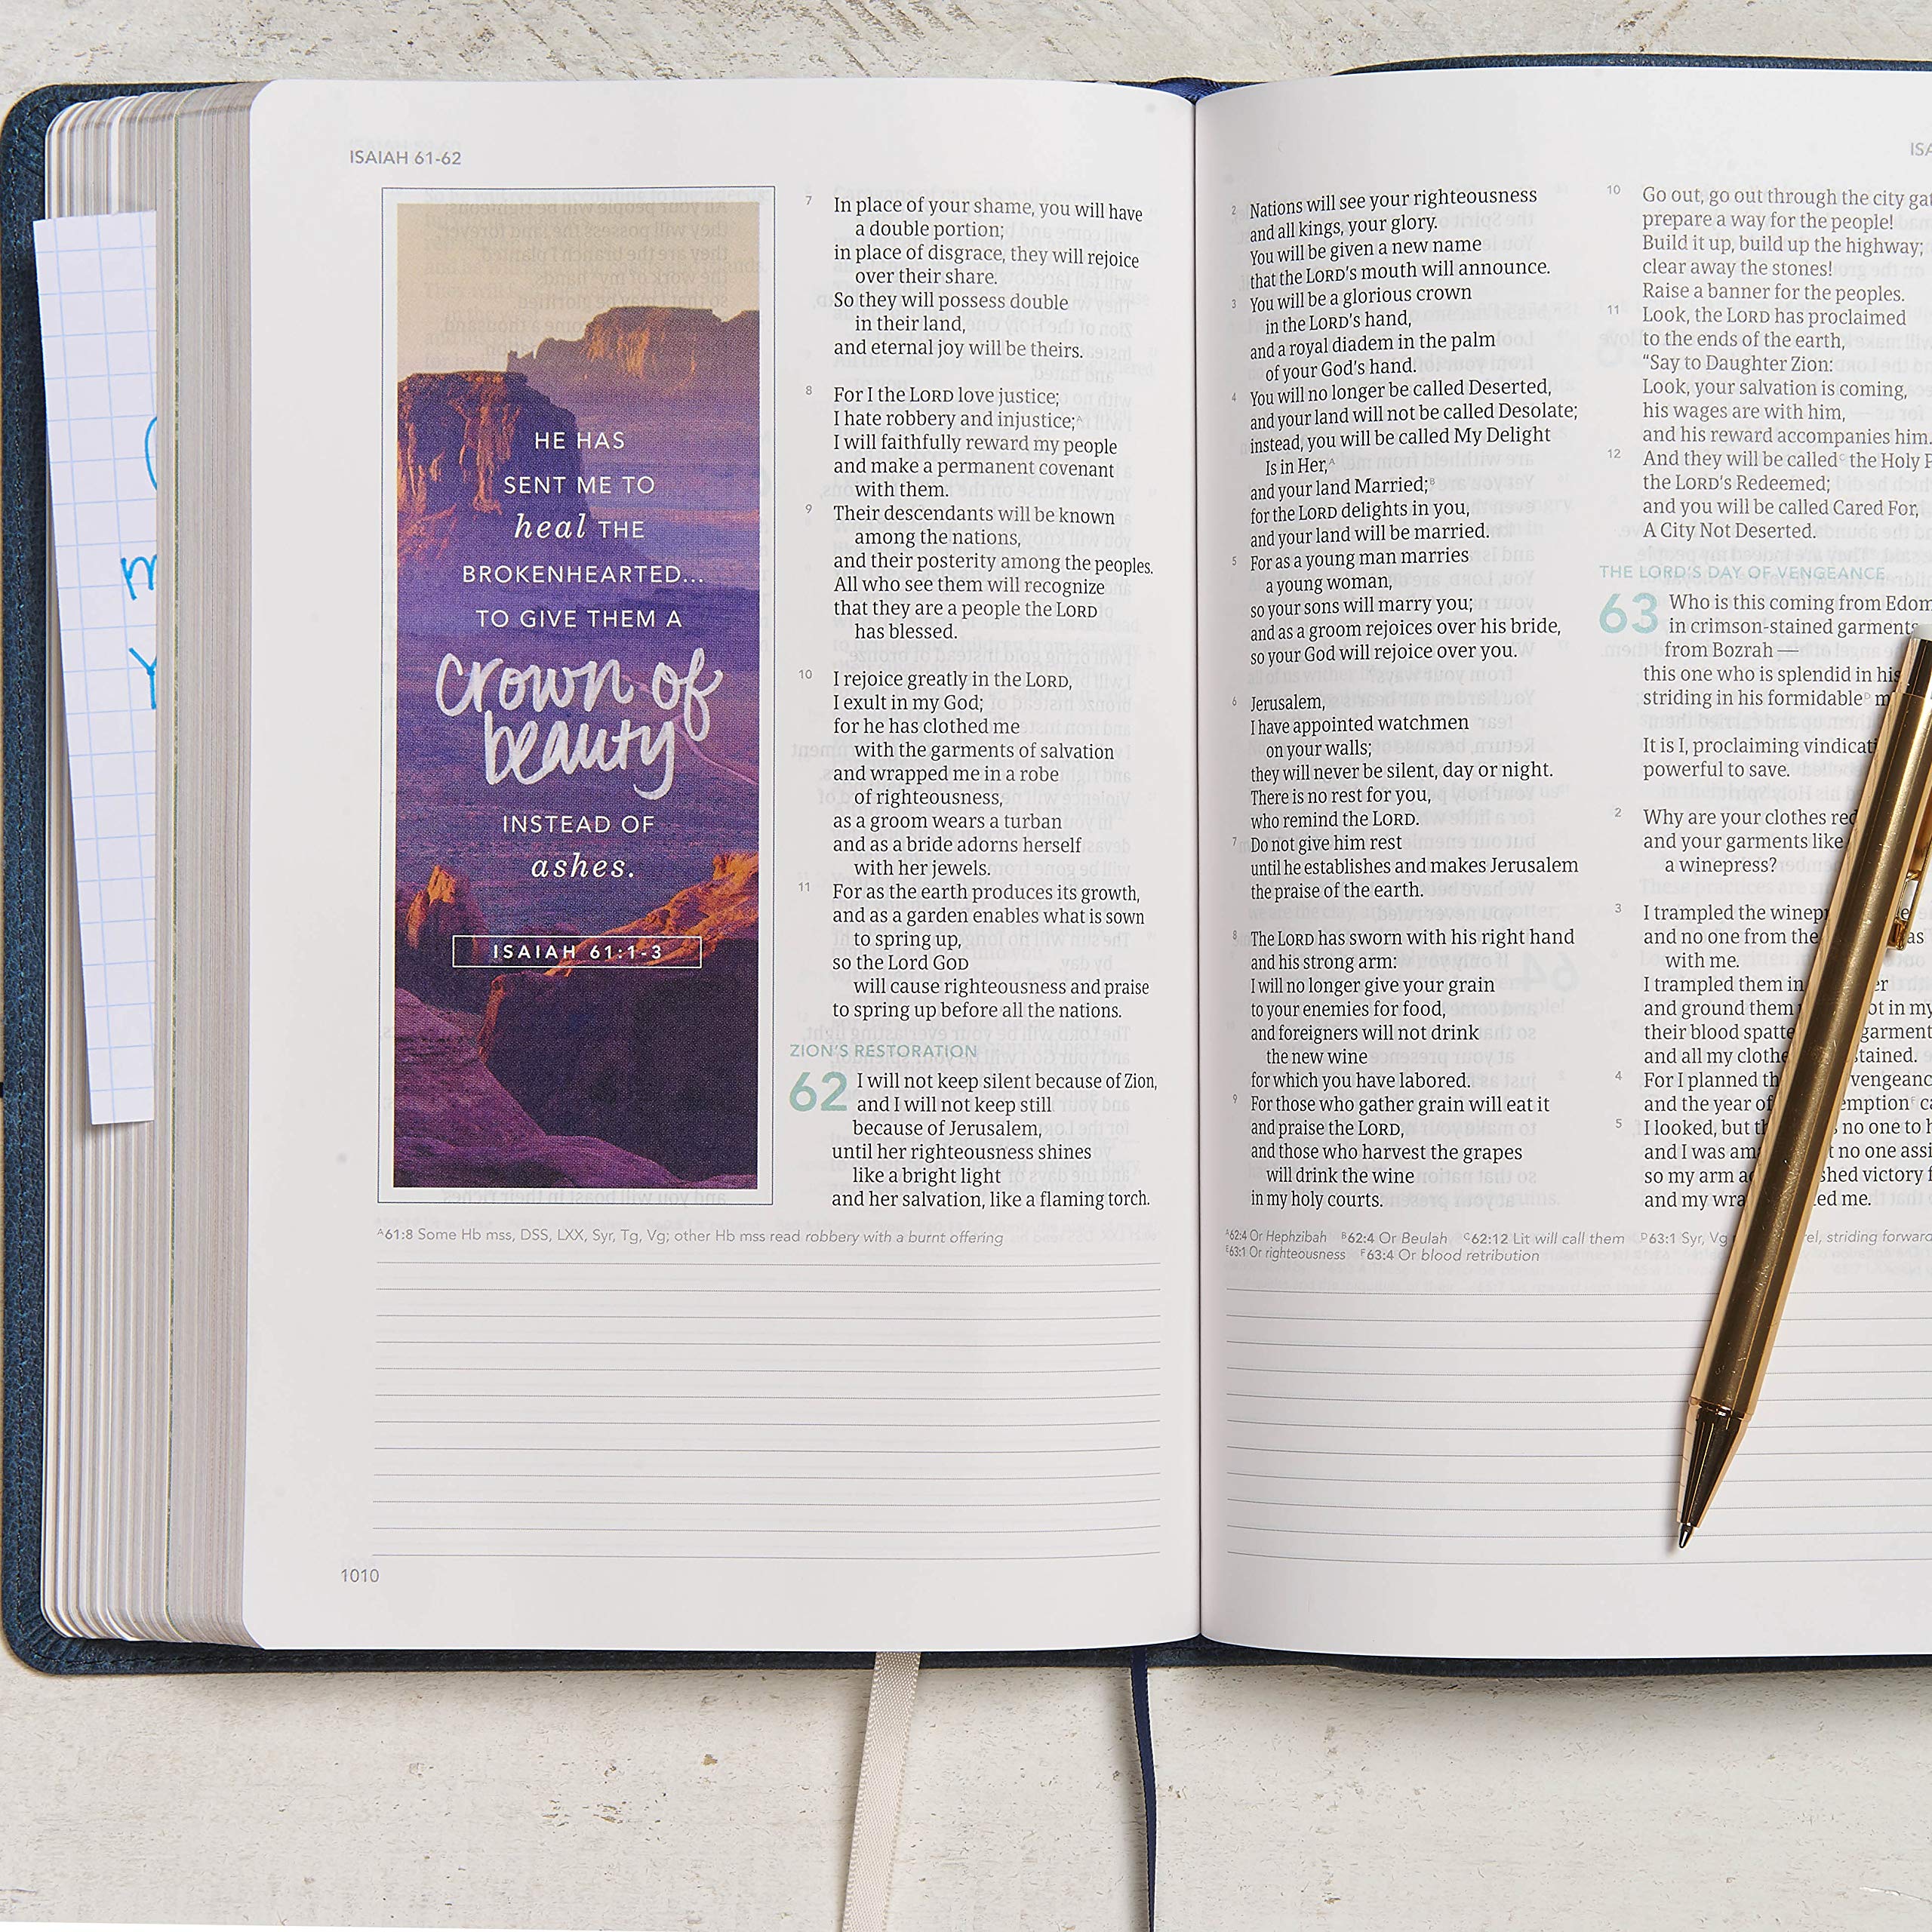 ISAIAH 61-62
HE HAS
SENT ME TO
heal THE
BROKENHEARTED...
TO GIVE THEM A
crown of
beauty
INSTEAD OF
ashes.
ISAIAH 61:1-3
7 In place of your shame, you will have
a double portion;
in place of disgrace, they will rejoice
over their share.
So they will possess double
in their land,
and eternal joy will be theirs.
8 For I the LORD love justice;
I hate robbery and injustice;ᴬ
I will faithfully reward my people
and make a permanent covenant
with them.
9 Their descendants will be known
among the nations,
and their posterity among the peoples.
All who see them will recognize
that they are a people the LORD
has blessed.
10 I rejoice greatly in the LORD,
I exult in my God;
for he has clothed me
with the garments of salvation
and wrapped me in a robe
of righteousness,
as a groom wears a turban
and as a bride adorns herself
with her jewels.
11 For as the earth produces its growth,
and as a garden enables what is sown
to spring up,
so the Lord GOD
will cause righteousness and praise
to spring up before all the nations.
ZION'S RESTORATION
62 I will not keep silent because of Zion,
and I will not keep still
because of Jerusalem,
until her righteousness shines
like a bright light
and her salvation, like a flaming torch.
ᴬ61:8 Some Hb mss, DSS, LXX, Syr, Tg, Vg; other Hb mss read robbery with a burnt offering
1010
2 Nations will see your righteousness
and all kings, your glory.
You will be given a new name
that the LORD's mouth will announce.
3 You will be a glorious crown
in the LORD's hand,
and a royal diadem in the palm
of your God's hand.
4 You will no longer be called Deserted,
and your land will not be called Desolate;
instead, you will be called My Delight
Is in Her,ᴬ
and your land Married;ᴮ
for the LORD delights in you,
and your land will be married.
5 For as a young man marries
a young woman,
so your sons will marry you;
and as a groom rejoices over his bride,
so your God will rejoice over you.
6 Jerusalem,
I have appointed watchmen
on your walls;
they will never be silent, day or night.
There is no rest for you,
who remind the LORD.
7 Do not give him rest
until he establishes and makes Jerusalem
the praise of the earth.
8 The LORD has sworn with his right hand
and his strong arm:
I will no longer give your grain
to your enemies for food,
and foreigners will not drink
the new wine
for which you have labored.
9 For those who gather grain will eat it
and praise the LORD,
and those who harvest the grapes
will drink the wine
in my holy courts.
10 Go out, go out through the city
prepare a way for the people!
Build it up, build up the highway;
clear away the stones!
Raise a banner for the peoples.
11 Look, the LORD has proclaimed
to the ends of the earth,
“Say to Daughter Zion:
Look, your salvation is coming,
his wages are with him,
and his reward accompanies him.
12 And they will be calledᶜ the Holy
the LORD's Redeemed;
and you will be called Cared For,
A City Not Deserted.
THE LORD'S DAY OF VENGEANCE
63 Who is this coming from Edom
in crimson-stained garments
from Bozrah —
this one who is splendid in his
striding in his formidableᴰ
It is I, proclaiming
powerful to save.
2 Why are your clothes
and your garments like
a winepress?
3 I trampled the
and no one from the
with me.
I trampled them in
and ground them in my
their blood
and all my
4 For I planned
and the year of
5 I looked, but no one to
and I was no one
so my arm victory
and my me.
ᴬ62:4 Or Hephzibah ᴮ62:4 Or Beulah ᶜ62:12 Lit will call them ᴰ63:1 Syr, Vg striding forward
ᴱ63:1 Or righteousness ᶠ63:4 Or blood retribution